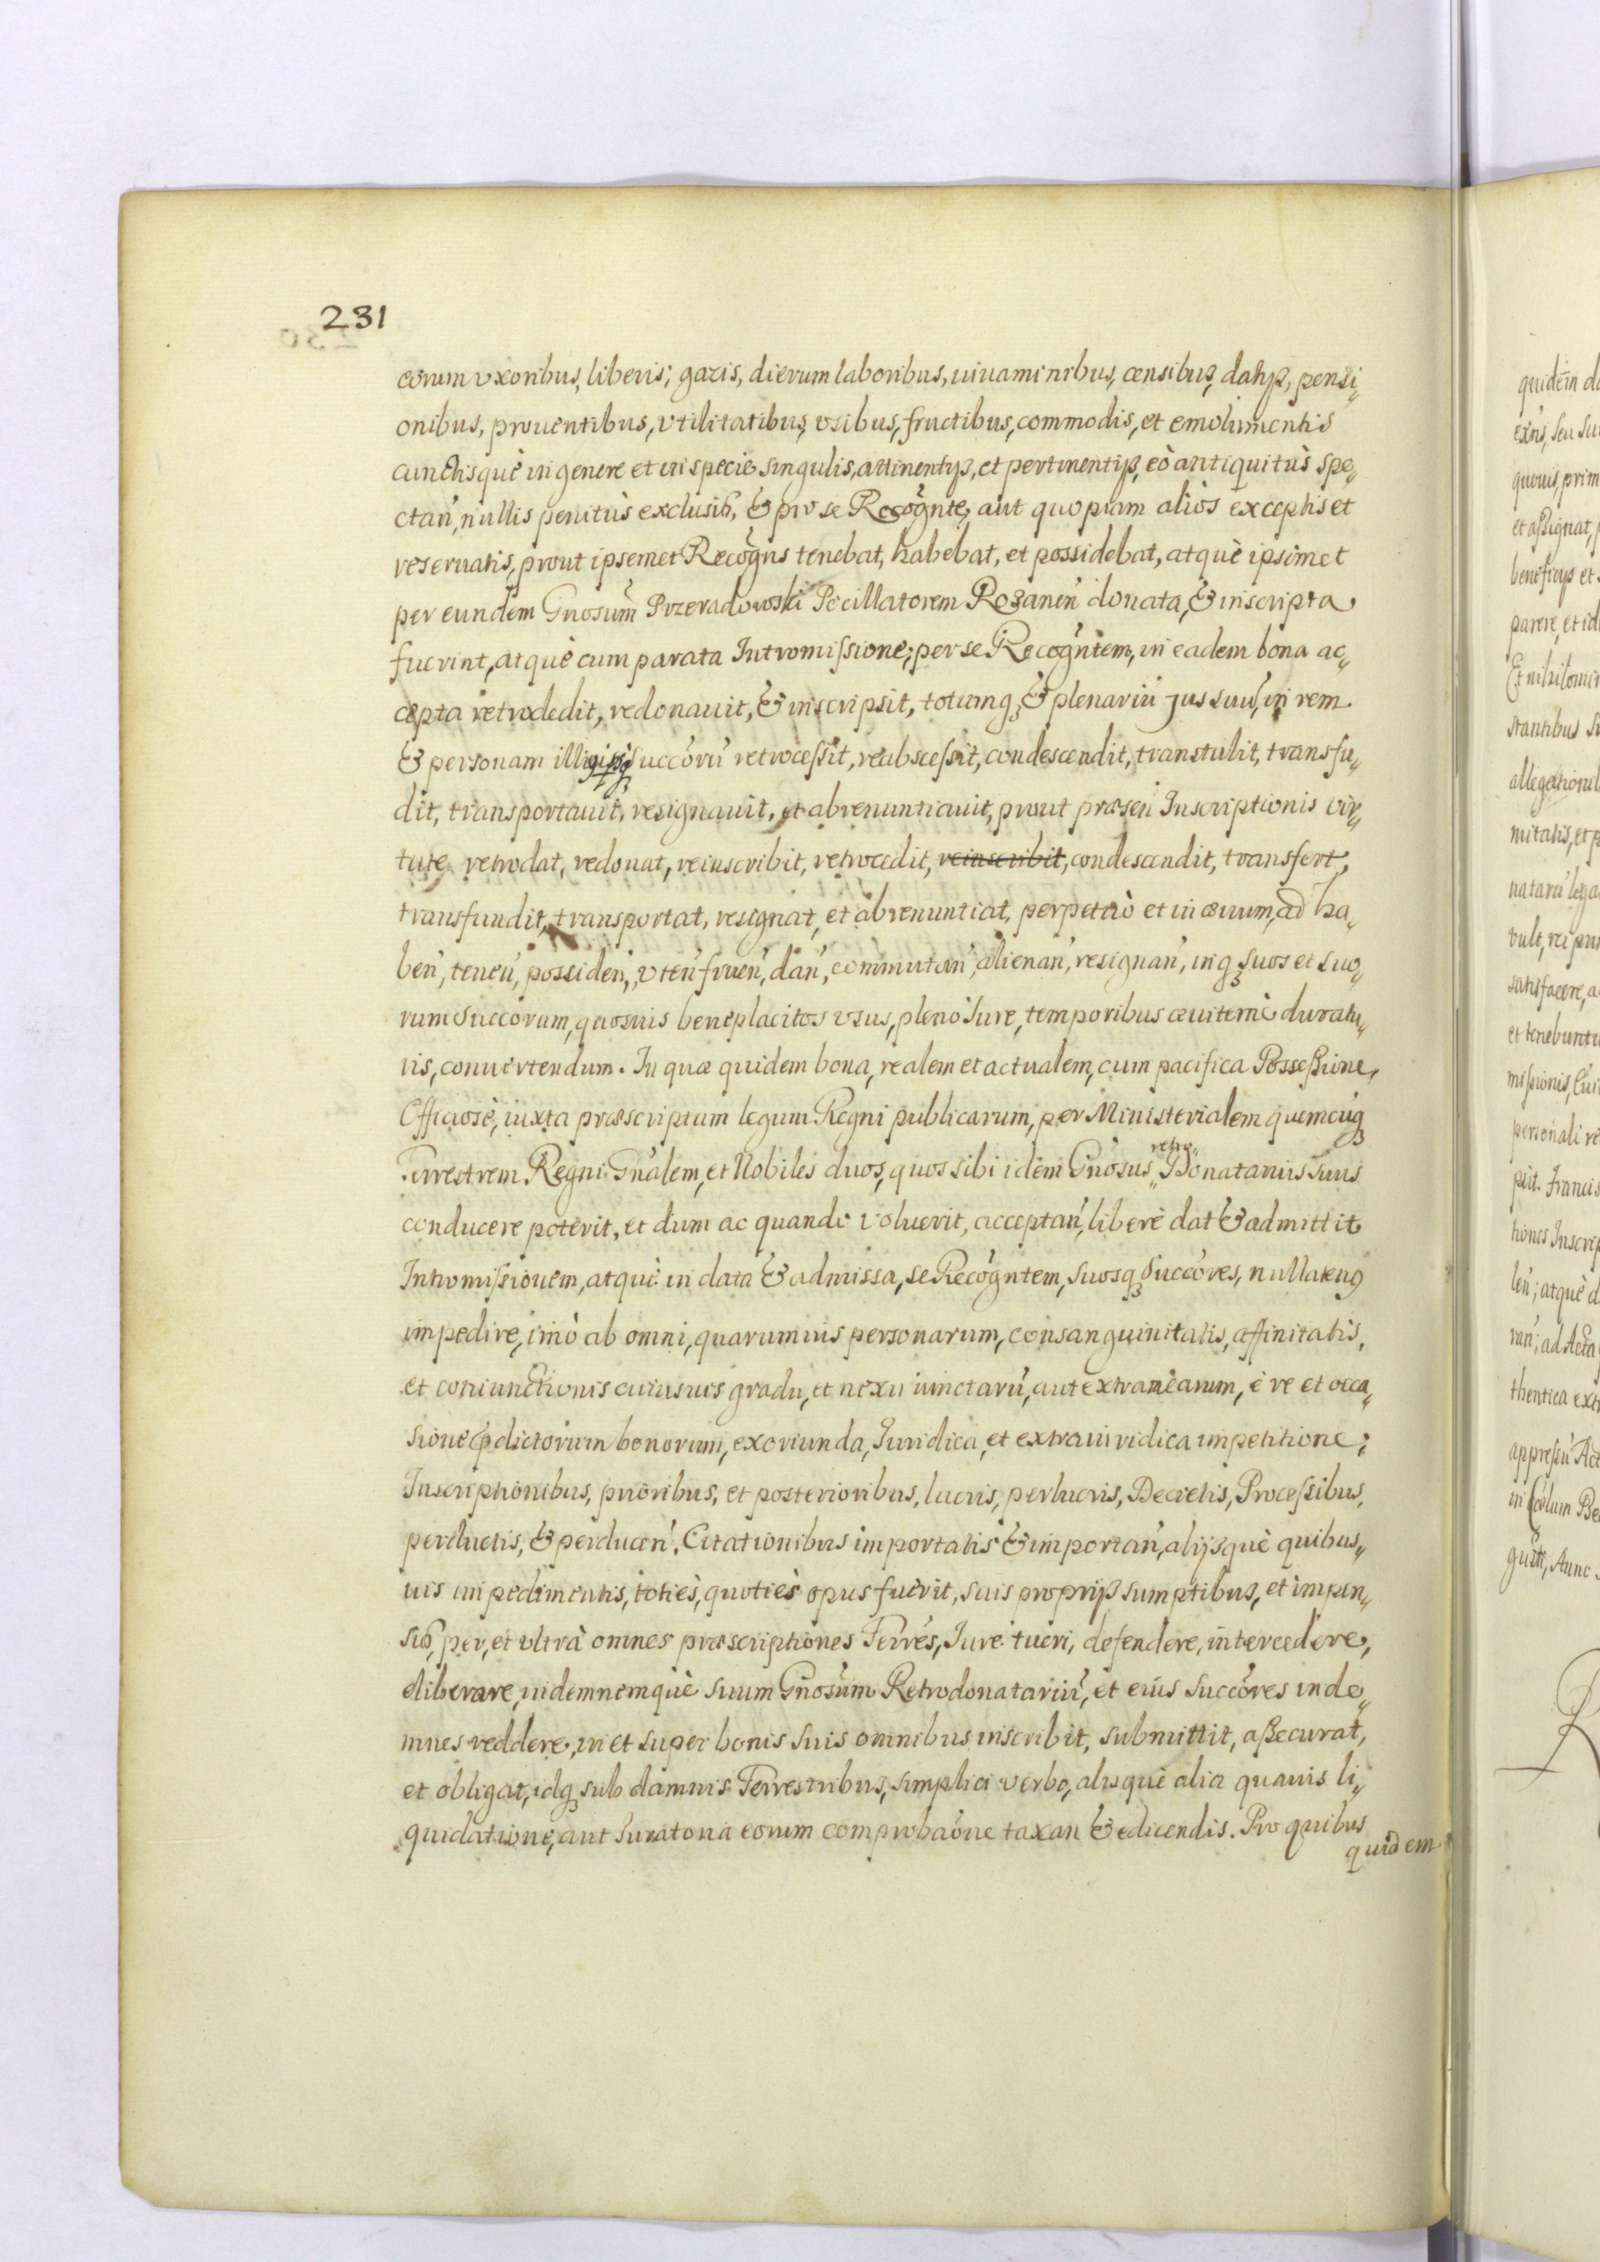 231
eorum uxoribus, liberis; gazis, dierum laboribus, uiuaminibus, censibus, datijs, pensi„
onibus, prouentibus, vtilitatibus, vsibus, fructibus, commodis, et emolumentis
cunctisquè in genere et in specie singulis, attinentijs, et pertinentijs, eò antiquitùs spe„
ctañ, nullis penitùs exclusis, & pro se Recognte, aut quopiam aliòs exceptis et
reseruatis, prout ipsemet Recogns tenebat, habebat, et possidebat, atquè ipsimet
per eundem Gnosum Przeradowski Pocillatorem Rozaneñ donata, & inscripta
fuerint, atquè cum parata Intromissione, per se Recogntem, in eadem bona ac„
cepta retrodedit, redonauit, & inscripsit, totumq; & plenariũ jus suũ, in rem
& personam illi succorũ retrocessit, reabscessit, condescendit, transtulit, transfu„
dit, transportauit, resignauit, et abrenuntiauit, prout præseñ Inscriptionis vir„
tute retrodat, redonat, reinscribit, retrocedit, reinscribit, condescendit, transfert,
transfundit, transportat, resignat, et abrenuntiat, perpetuò et in æuum, ad ha„
beñ, teneñ, possideñ, vteñ frueñ, dañ, commutañ, alienañ, resignañ, inq; suos et suo„
rum Succorum, quosuis beneplacitos vsus, pleno Iure, temporibus æuiternè duratu„
ris, conuertendum. In quæ quidem bona, realem et actualem, cum pacifica Possessione,
Officiosè, iuxta præscriptum legum Regni publicarum, per Ministerialem quemcuq;
Terrestrem Regni Gnalem, et Nobiles duos, quos sibi idem Gnosus retro„ Donatarius suus
conducere poterit, et dum ac quando voluerit, acceptañ, liberè dat & admittit
Intromissionem, atquè in data & admissa, se Recogntem, suosq; Succores, nullatenq
impedire, imò ab omni, quarumuis personarum, consanguinitatis, affinitatis,
et coniunctionis cuiusuis gradu, et nexu iunctarũ, aut extranearum, è re et occa„
sione p̄dictorum bonorum, exoriunda, Iuridica, et extraiuridica impetitione;
Inscriptionibus, prioribus, et posterioribus, lucris, perlucris, Decretis, Processibus,
perductis, & perduceñ, Citationibus importatis & importañ, alijsquè quibus„
uis impedimentis, totiès, quotiès opus fuerit, suis proprijs sumptibus, et impen„
sis, per, et vltrà omnes præscriptiones Terres, Iure tueri, defendere, intercedere,
eliberare, indemnemquè suum Gnosum Retrodonatariũ, et eius Succores inde„
mnes reddere, in et super bonis suis omnibus inscribit, submittit, assecurat,
et obligat, idq; sub damnis Terrestribus, simplici verbo, absquè alia quauis li„
quidatione, aut Iuratoria eorum comprobaone taxañ & edicendis. Pro quibus
quidem